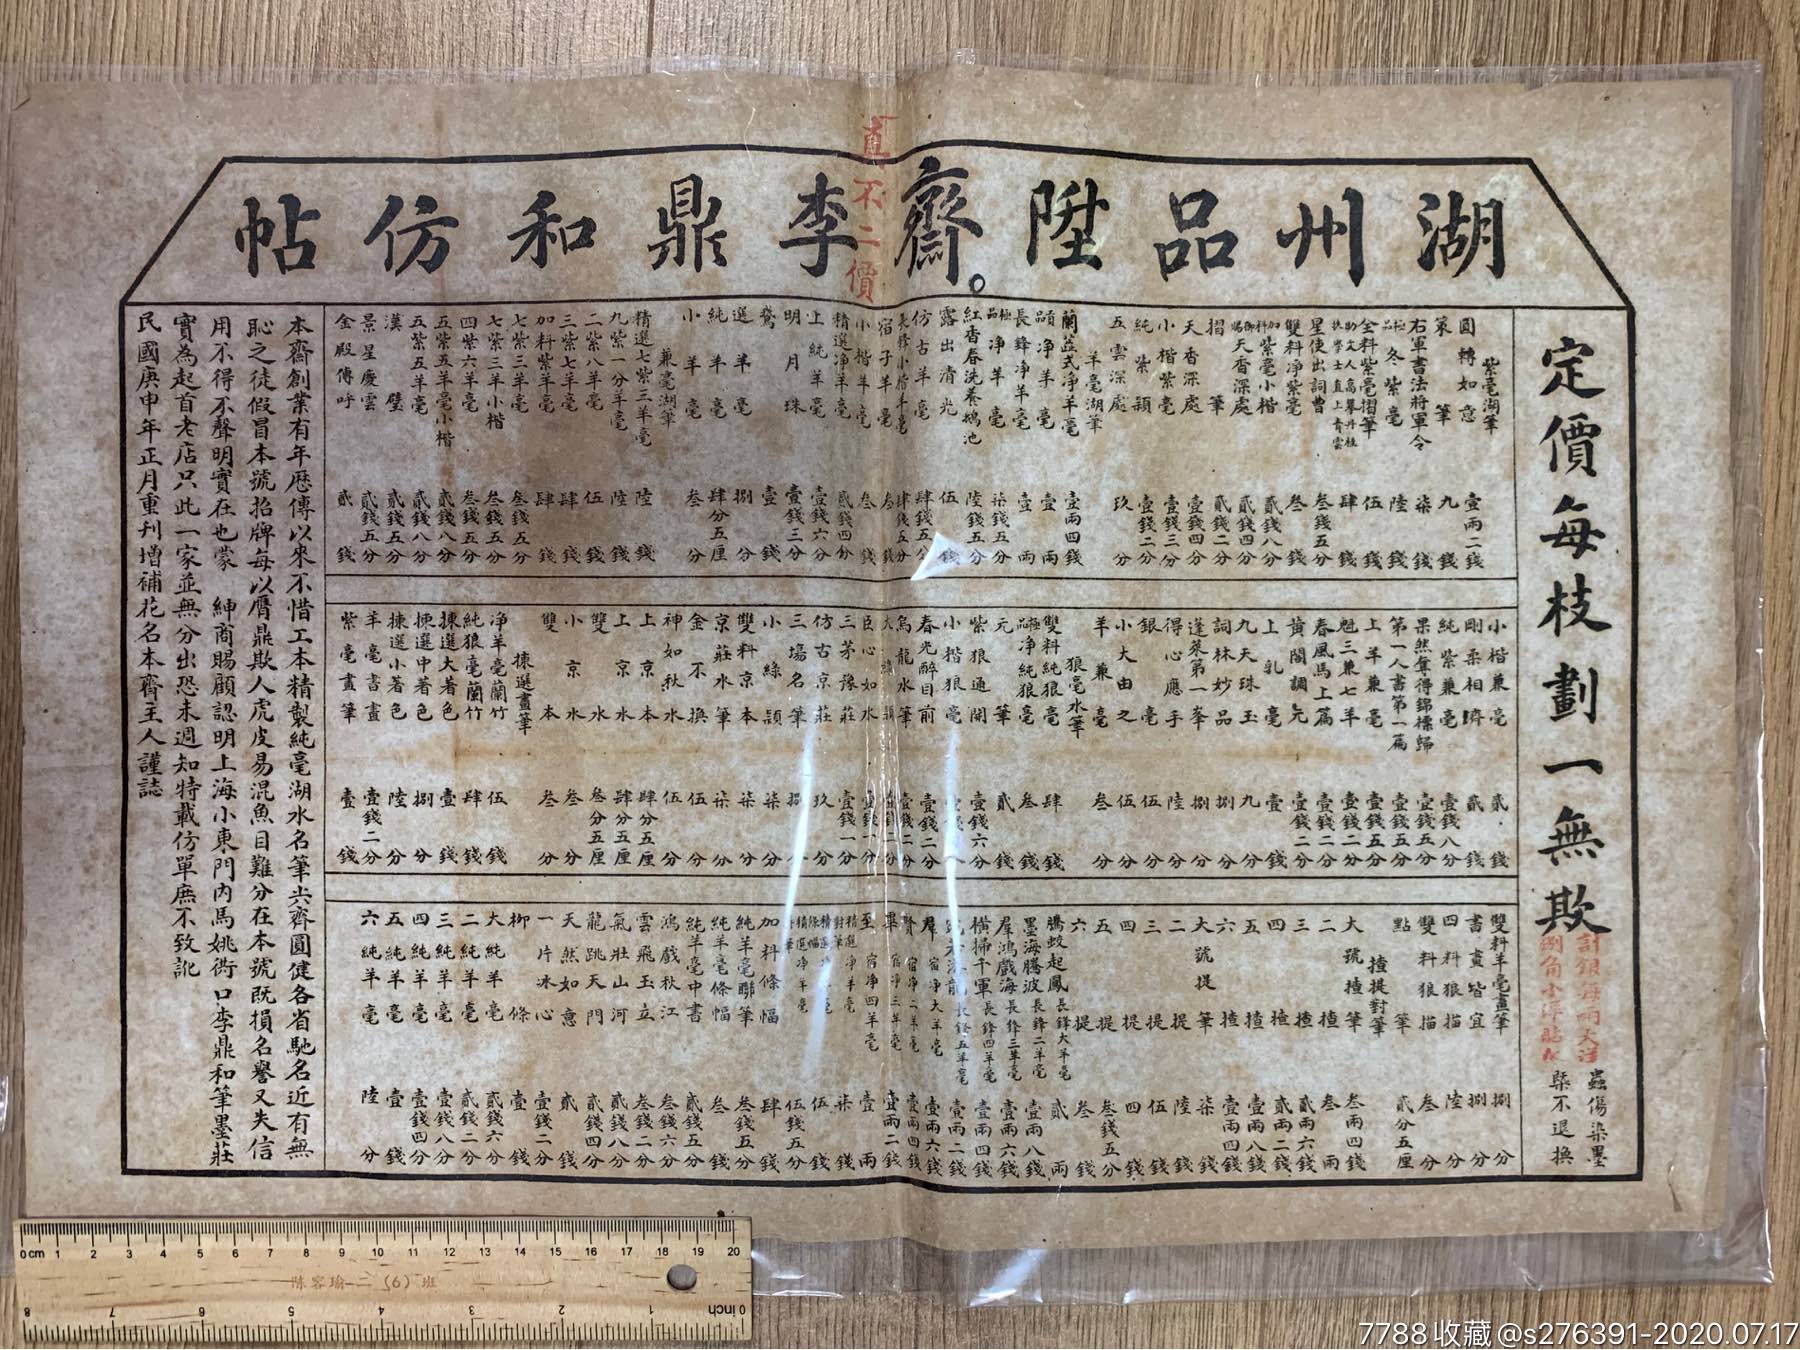 湖州品陞齋李鼎和仿帖
真不二價
定價每枝劃一無欺
計銀每兩大洋
蟲傷染墨
槩不退換
紫毫湖筆
圓轉如意 壹兩二錢
策筆 九錢
右軍書法將軍令 柒錢
極品冬紫毫 陸錢
全料紫毫摺筆 伍錢
星使出詞曹 叁錢五分
雙料净紫毫 叁錢
加料紫毫小楷 貳錢八分
御賜天香深處 貳錢四分
摺筆 貳錢二分
天香深處 壹錢四分
小楷紫毫 壹錢三分
純紫穎 壹錢二分
五雲深處 玖分
羊毫湖筆
蘭蕊式净羊毫 壹兩四錢
頂品净羊毫 壹兩
長鋒净羊毫 壹兩
極品净羊毫 柒錢五分
紅杏春洗養鵝池 陸錢五分
露出清光 伍錢
仿古羊毫 肆錢五分
宿子羊毫 叁錢
小楷羊毫 叁錢
精選净羊毫 貳錢四分
上純羊毫 壹錢六分
明月珠 壹錢三分
鶩 壹錢
選羊毫 捌分
純羊毫 肆分五厘
小羊毫 叁分
兼毫湖筆
精選七紫三羊毫 陸錢
九紫一分羊毫 陸錢
二紫八羊毫 伍錢
三紫七羊毫 肆錢
加料紫羊毫 肆錢
七紫三羊毫 叁錢五分
七紫三羊小楷 叁錢五分
四紫六羊毫 叁錢五分
五紫五羊毫小楷 貳錢八分
五紫五羊毫 貳錢八分
漢璧 貳錢五分
景星慶雲 貳錢五分
金殿傳呼 貳錢
小楷兼毫 貳錢
剛柔相濟 貳錢
純紫兼毫 壹錢八分
果然奪得錦標歸 壹錢五分
第一人書第一篇 壹錢五分
上羊兼毫 壹錢五分
魁三兼七羊 壹錢二分
春風馬上篇 壹錢二分
黄閣調元 壹錢二分
上乳毫 壹錢
九天珠玉 九分
詞林妙品 捌分
蓬萊第一峯 捌分
得心應手 陸分
銀毫 伍分
小大由之 伍分
羊兼毫 叁分
狼毫水筆
雙料純狼毫 肆錢
極品净純狼毫 叁錢
元筆 貳錢
紫狼通開 壹錢六分
小楷狼毫
春光醉目前 壹錢二分
烏龍水筆 壹錢二分
臣心如水 壹錢一分
三茅豫莊 壹錢一分
仿古京莊 玖分
三場名筆 捌分
小綠穎 柒分
雙料京本 柒分
京莊水筆 柒分
金不換 伍分
神如秋水 伍分
上京本 肆分五厘
上京水 肆分五厘
雙京水 叁分五厘
小京水 叁分
雙本 叁分
揀選畫筆
净羊毫蘭竹 伍錢
純狼毫蘭竹 肆錢
揀選大著色 壹錢
揀選中著色 捌分
揀選小著色 陸分
羊毫書畫 壹錢二分
紫毫畫筆 壹錢
雙料羊毫畫筆 捌分
書畫皆宜 捌分
四料狼描 陸分
雙料狼描 叁分
點筆 貳分五厘
揸提對筆
大號揸筆 叁兩四錢
二揸 叁兩
三揸 貳兩六錢
四揸 貳兩二錢
五揸 壹兩八錢
六揸 壹兩四錢
大號提筆 柒錢
二提 陸錢
三提 伍錢
四提 四錢
五提 叁錢五分
六提 叁錢
騰蛟起鳳 長鋒大羊毫 貳兩
墨海騰波 長鋒二羊毫 壹兩八錢
羣鴻戲海 長鋒三羊毫 壹兩六錢
橫掃千軍 長鋒四羊毫 壹兩四錢
長鋒五羊毫 壹兩二錢
加料條幅 肆錢
純羊毫聯筆 叁錢五分
純羊毫條幅 叁錢
純羊毫中書 貳錢五分
鴻戲秋江 叁錢六分
雲飛玉立 叁錢二分
氣壯山河 貳錢八分
龍跳天門 貳錢四分
天然如意 貳錢
一片冰心 壹錢二分
柳條 壹錢
大純羊毫 貳錢六分
二純羊毫 貳錢二分
三純羊毫 壹錢八分
四純羊毫 壹錢四分
五純羊毫 壹錢
六純羊毫 陸分
本齋創業有年歷傳以來不惜工本精製純毫湖水名筆尖齊圓健各省馳名近有無
恥之徒假冒本號招牌每以膺鼎欺人虎皮易混魚目難分在本號既損名譽又失信
用不得不聲明實在也蒙 紳商賜顧認明上海小東門內馬姚衖口李鼎和筆墨莊
實為起首老店只此一家並無分出恐未週知特載仿單庶不致訛
民國庚申年正月重刊增補花名本齋主人謹誌
陈容瑜二(6)班
0cm 1 2 3 4 5 6 7 8 9 10 11 12 13 14 15 16 17 18 19 20
8 7 6 5 4 3 2 1 0 inch
7788收藏@s276391-2020.07.17